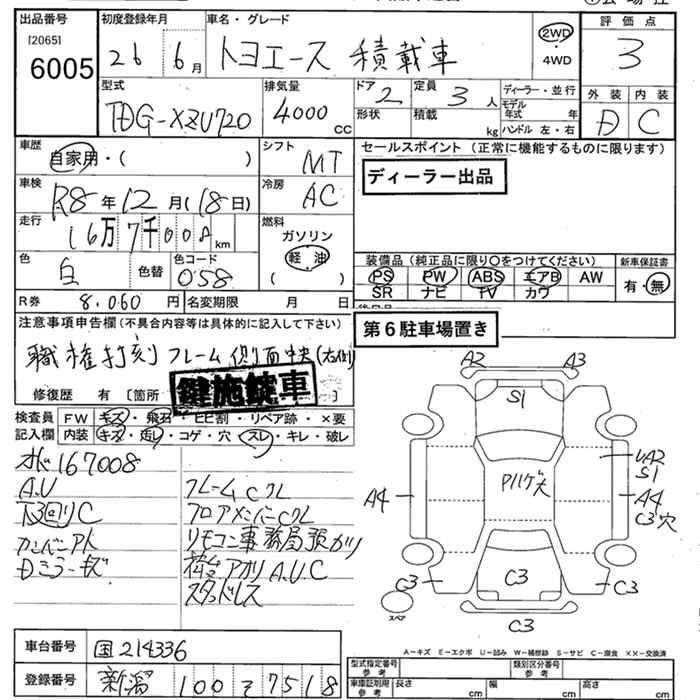 出品番号
[2065]
6005
初度登録年月
26 年 6 月
車名・グレード
トヨエース 積載車
2WD
・
4WD
評価点
3
型式
TDG-XZU720
排気量
4000 cc
ドア
2
形状
定員
3 人
積載
kg
ディーラー・並行
モデル年式 年
ハンドル 左・右
外装
D
内装
C
車歴
自家用・( )
シフト
MT
セールスポイント (正常に機能するものに限ります)
ディーラー出品
車検
R8 年 12 月 (18 日)
冷房
AC
走行
16万7千008 km
燃料
ガソリン
軽油
( )
色
白
色替
色コード
058
装備品 (純正品に限り○をつけてください)
PS PW ABS エアB AW
SR ナビ TV カワ
新車保証書
有・無
R券 8,060 円
名変期限 月 日
注意事項申告欄 (不具合内容等は具体的に記入して下さい)
第6駐車場置き
職権打刻 フレーム側面中央(右側)
修復歴 有 [箇所
鍵施錠車
検査員記入欄
FW キズ・飛石・ヒビ割・リペア跡・×要
内装 キズ・汚レ・コゲ・穴・スレ・キレ・破レ
167008
A.U
下回りC
フレームCクレ
フロアメンバーCクレ
リモコン事務局預かり
荷台アオリA.U.C
Dミラーキズ
スタッドレス
A2 A3
S1
Pハゲ大
UA2
S1
A4
A4
C3穴
C3 C3 C3
スペア
C3
A-キズ E-エクボ U-凹み W-補修跡 S-サビ C-腐食 ××-交換済
車台番号
国214336
登録番号
新潟 100 そ 7518
型式指定番号 参考
類別区分番号 参考
車庫証明用 参考
長さ cm
幅 cm
高さ cm